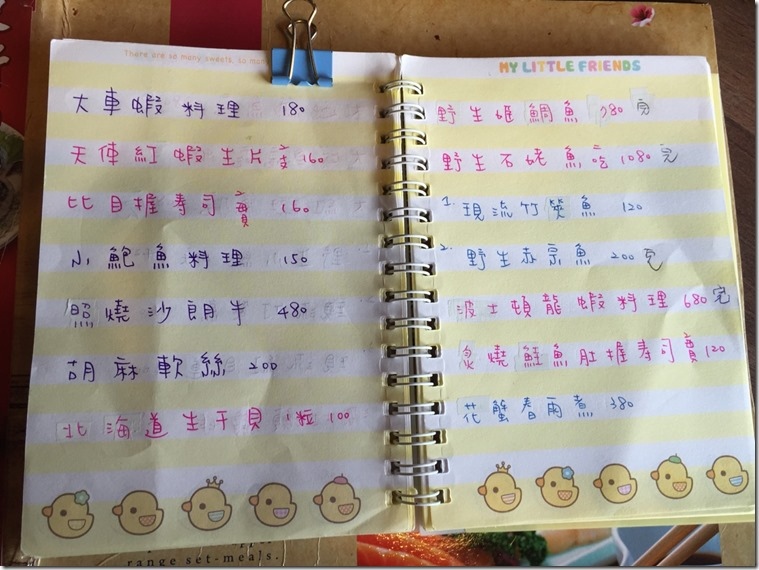 There are so many sweets, to
大車蝦料理 180
天使紅蝦生片 2支 160
比目握壽司 2貫 160
小鮑魚料理 150
照燒沙朗牛 480
胡麻軟絲 200
北海道生干貝 1粒 100
MY LITTLE FRIENDS
野生 鯛魚 380
野生石姥魚 吃 1080 完
1. 現流竹筴魚 120
2. 野生赤宗魚 200 完
波士頓龍蝦料理 680 完
炙燒鮭魚肚握壽司 貫 120
花蟹春雨煮 380
range set-meals.